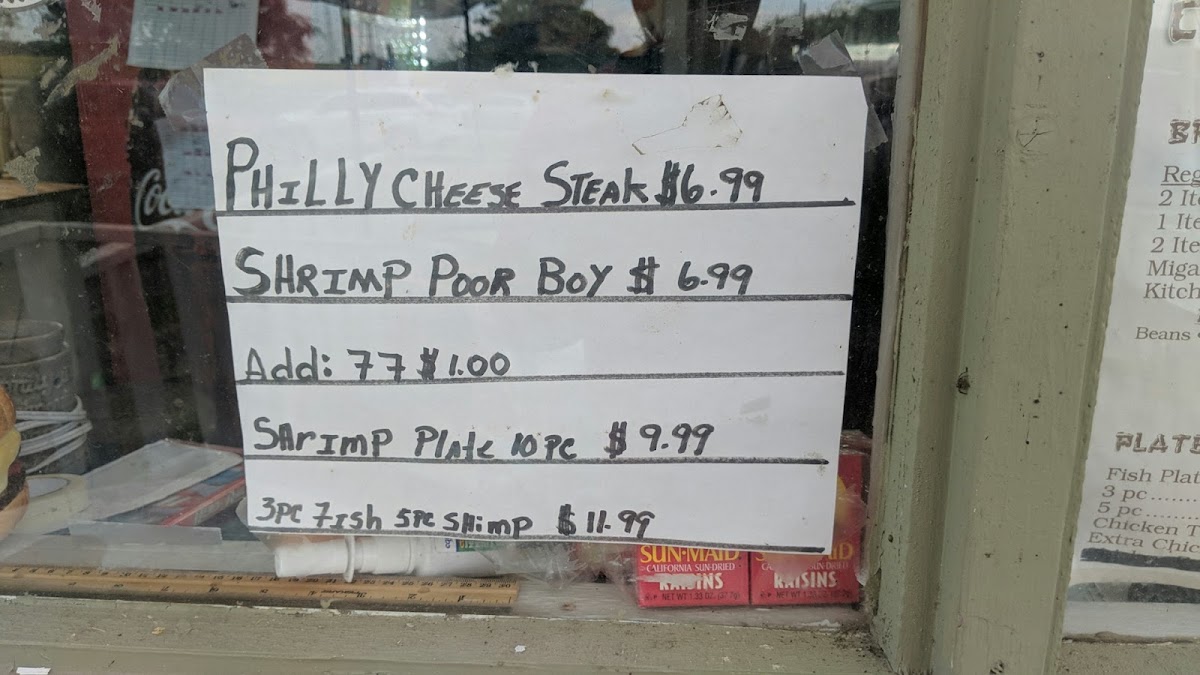 PHILLY CHEESE STEAK $6.99
SHRIMP POOR BOY $ 6.99
Add: 77 $1.00
SHrimp Plate 10 PC $ 9.99
3PC 7ish 5PC SHimp $ 11.99
SUN-MAID
CALIFORNIA SUN-DRIED
RAISINS
NET WT 1.33 OZ.
RAISINS
Reg
2 Ite
1 Ite
2 Ite
Miga
Kitch
Beans
PLATE
Fish Plat
3 pc......
5 pc......
Chicken T
Extra Chic